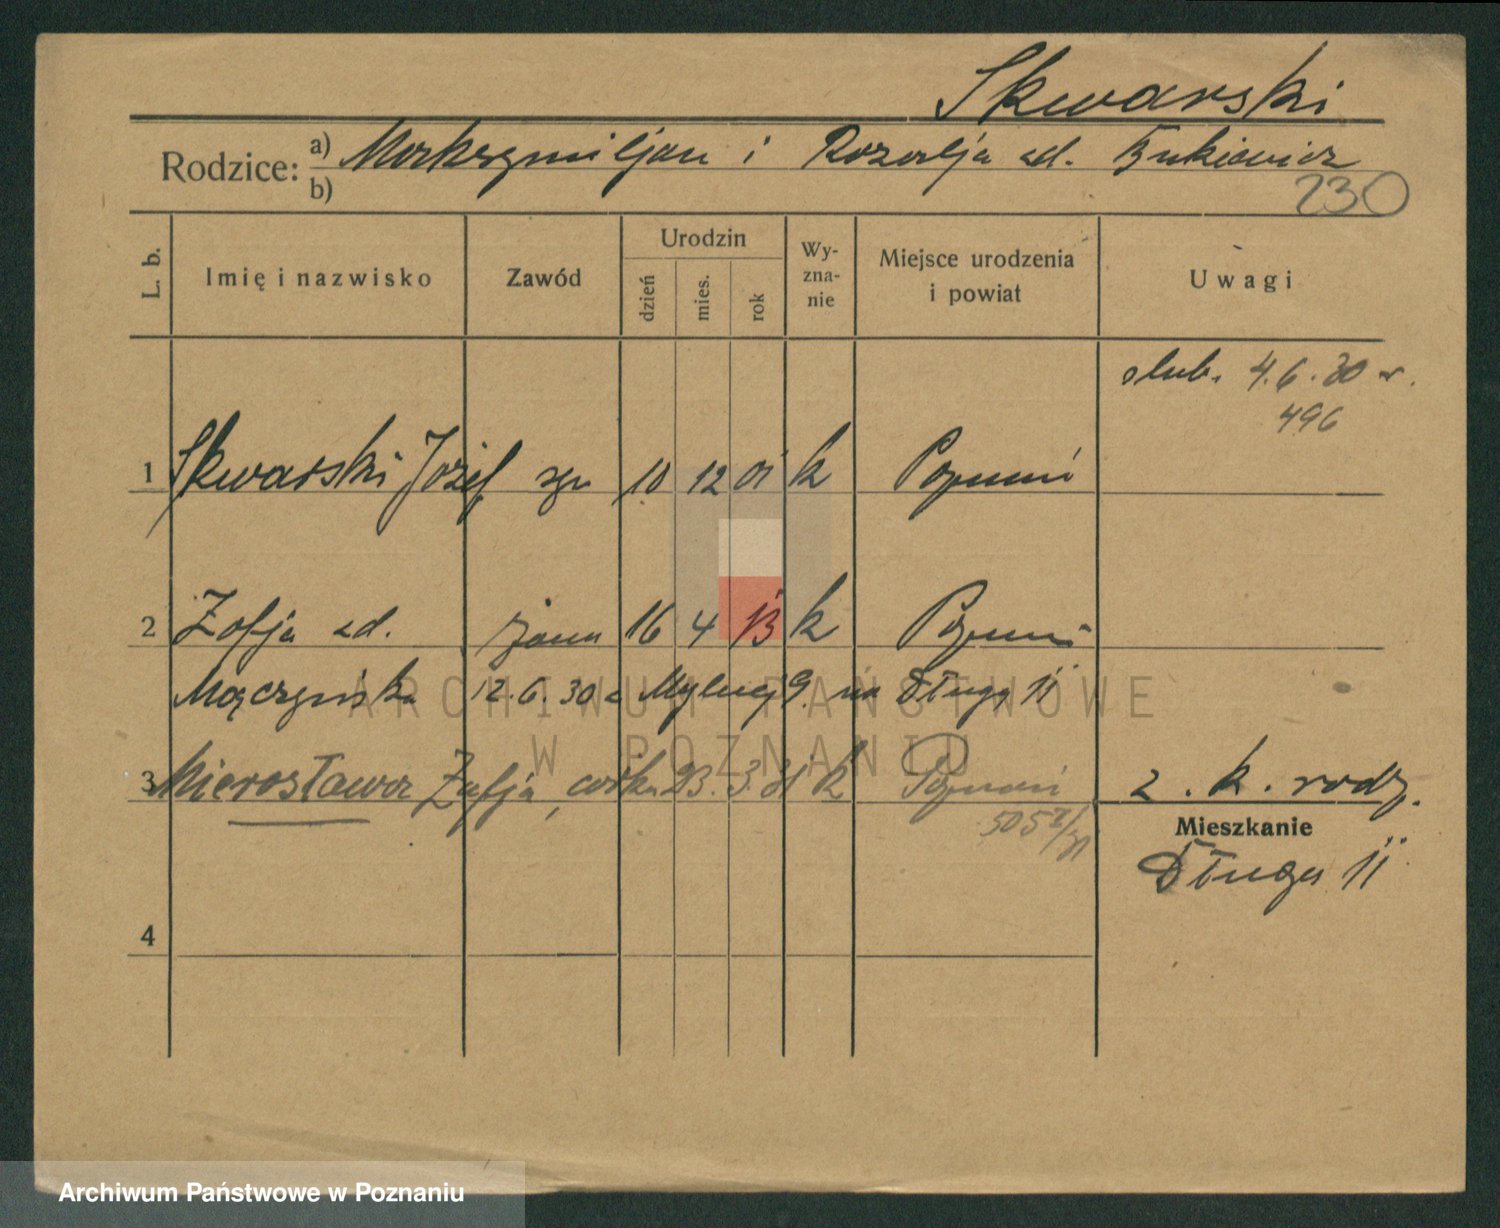 Skwarski
Rodzice: a) Maksymiljan i Rozalja zd.
b)
230
L. b. Imię i nazwisko Zawód Urodzin dzień mies. rok Wyznanie Miejsce urodzenia i powiat Uwagi
slub. 4.6.30 r.
496
1 Skwarski Józef 10 12 01 k Poznań
2 Zofja zd. żona 16 4 k Poznań
Mączyńska 12.6.30 z Mylnej 9. na Długą 11
3 Mierosława Zofja, córka 23. 3. 31 k Poznań 2. k. rodz.
505
Mieszkanie
Długa 11
4
ARCHIWUM PAŃSTWOWE
W POZNANIU
Archiwum Państwowe w Poznaniu